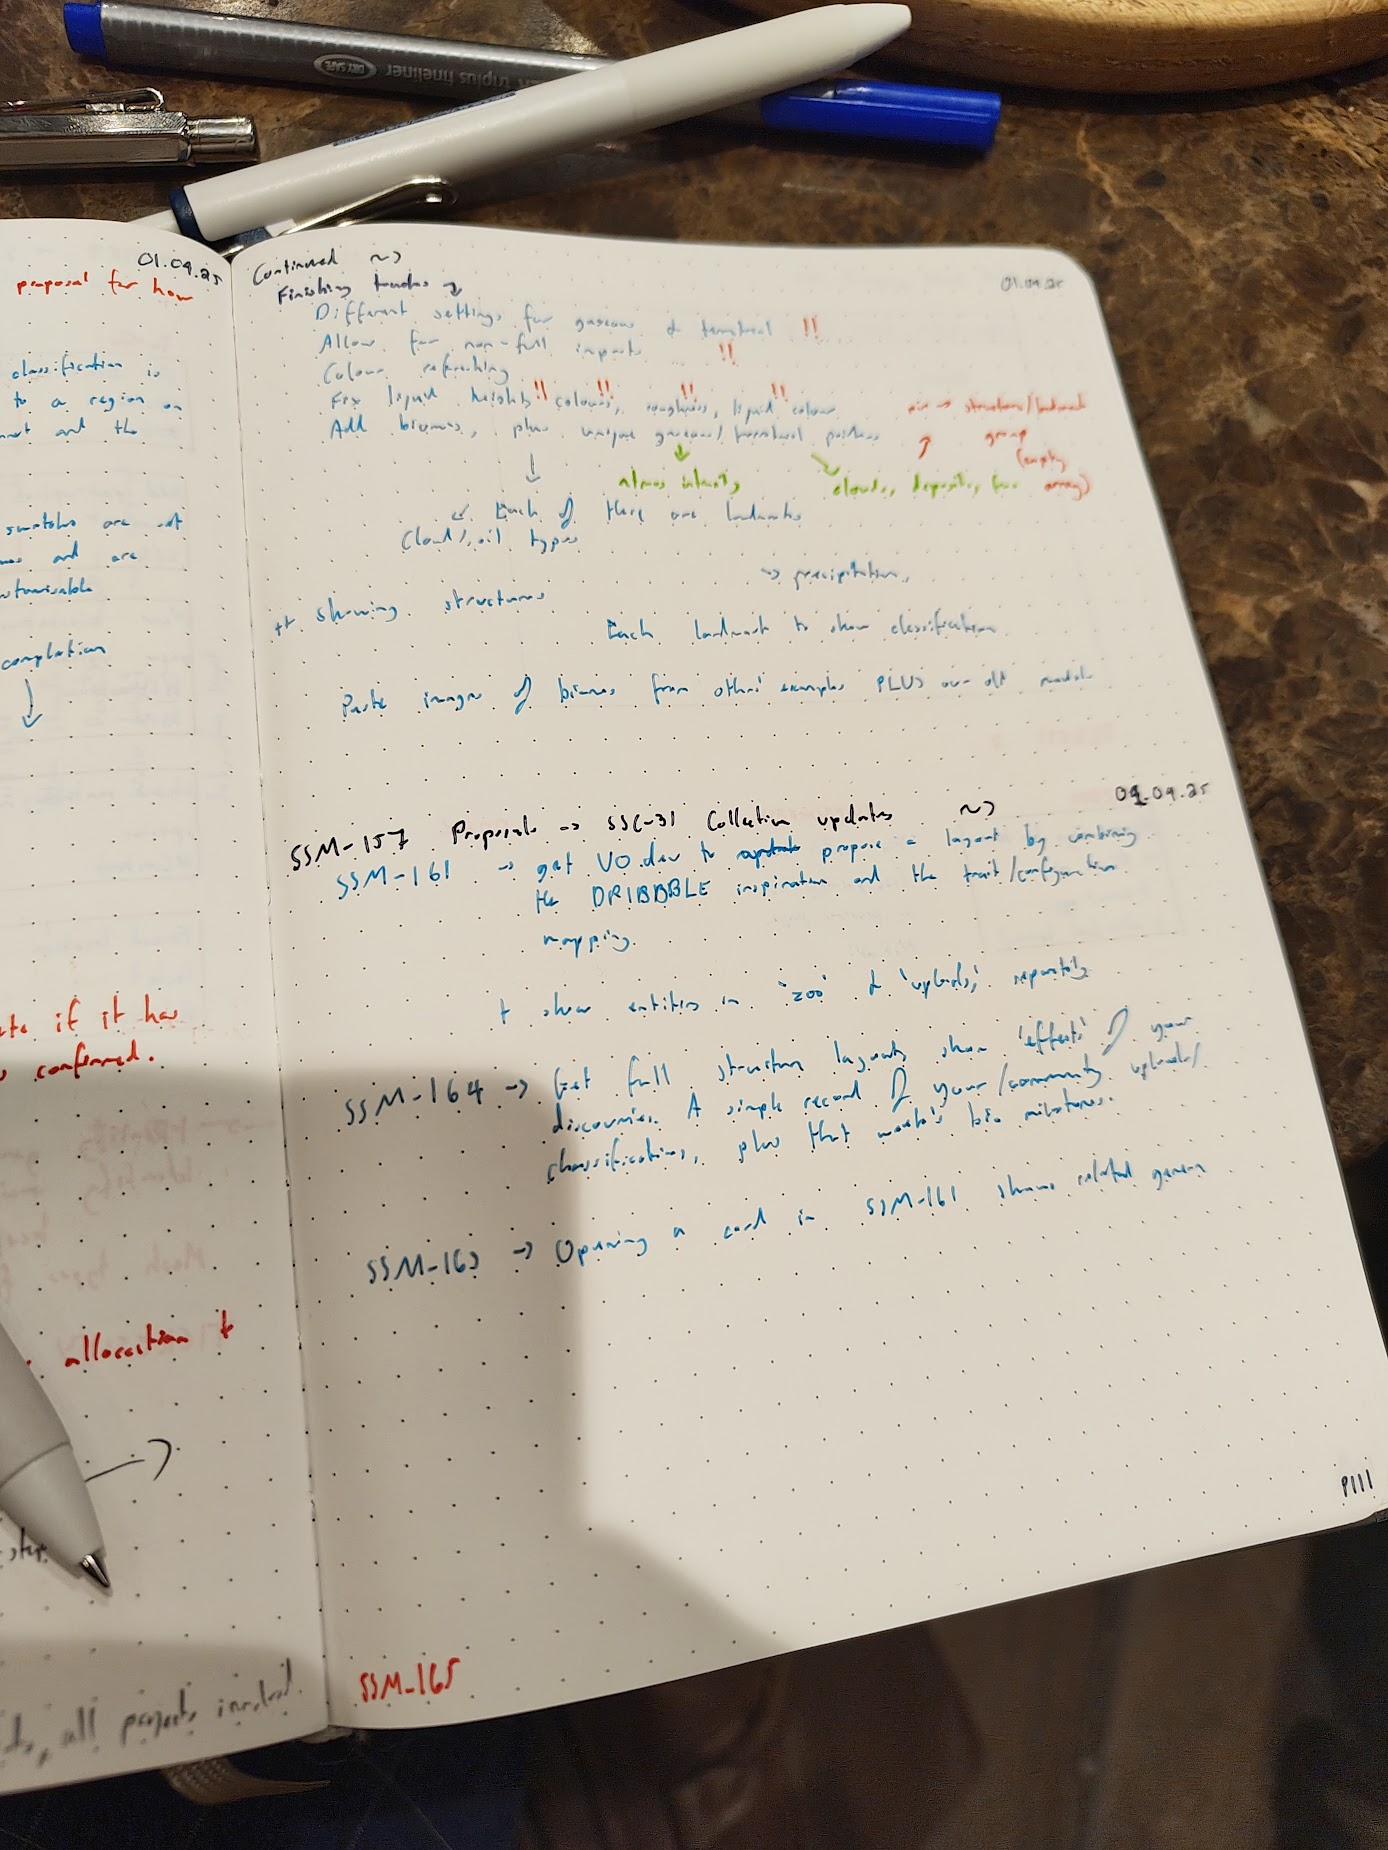 triplus fineliner
DRY SAFE
01.09.25
proposal for how
classification is
to a region on
and the
swatches are not
and are
customisable
completion
if it has
confirmed.
allocation +
all projects involved.
Continued ~>
01.09.25
Finishing touches
Different settings for gaseous & terrestrial !!
Allow for non-full impacts !!
Colour refreshing
Fix liquid heights!! colours,!! roughness,!! liquid colour!!
Add biomes, plus unique gaseous/terrestrial positions
-> structures/landmark
group
(empty
array)
atmos intensity
clouds, deposits,
Each of these are landmarks
Cloud/soil types
-> precipitation,
++ Showing structures
Each landmark to show classification
Paste images of biomes from other examples PLUS our old models
09.09.25
SSM-157 Proposals -> SSC-31 Collection updates ~>
SSM-161 -> get V0.dev to propose a layout by combining
the DRIBBBLE inspiration and the trait/configuration
mapping.
+ show entities in 'zoo' & 'uploads', separately
SSM-164 -> Get full structure layouts show 'effects' of your
discoveries. A simple record of your/community uploads/
classifications, plus that world's bio milestones.
SSM-163 -> Opening a card in SSM-161 shows related
P111
SSM-165